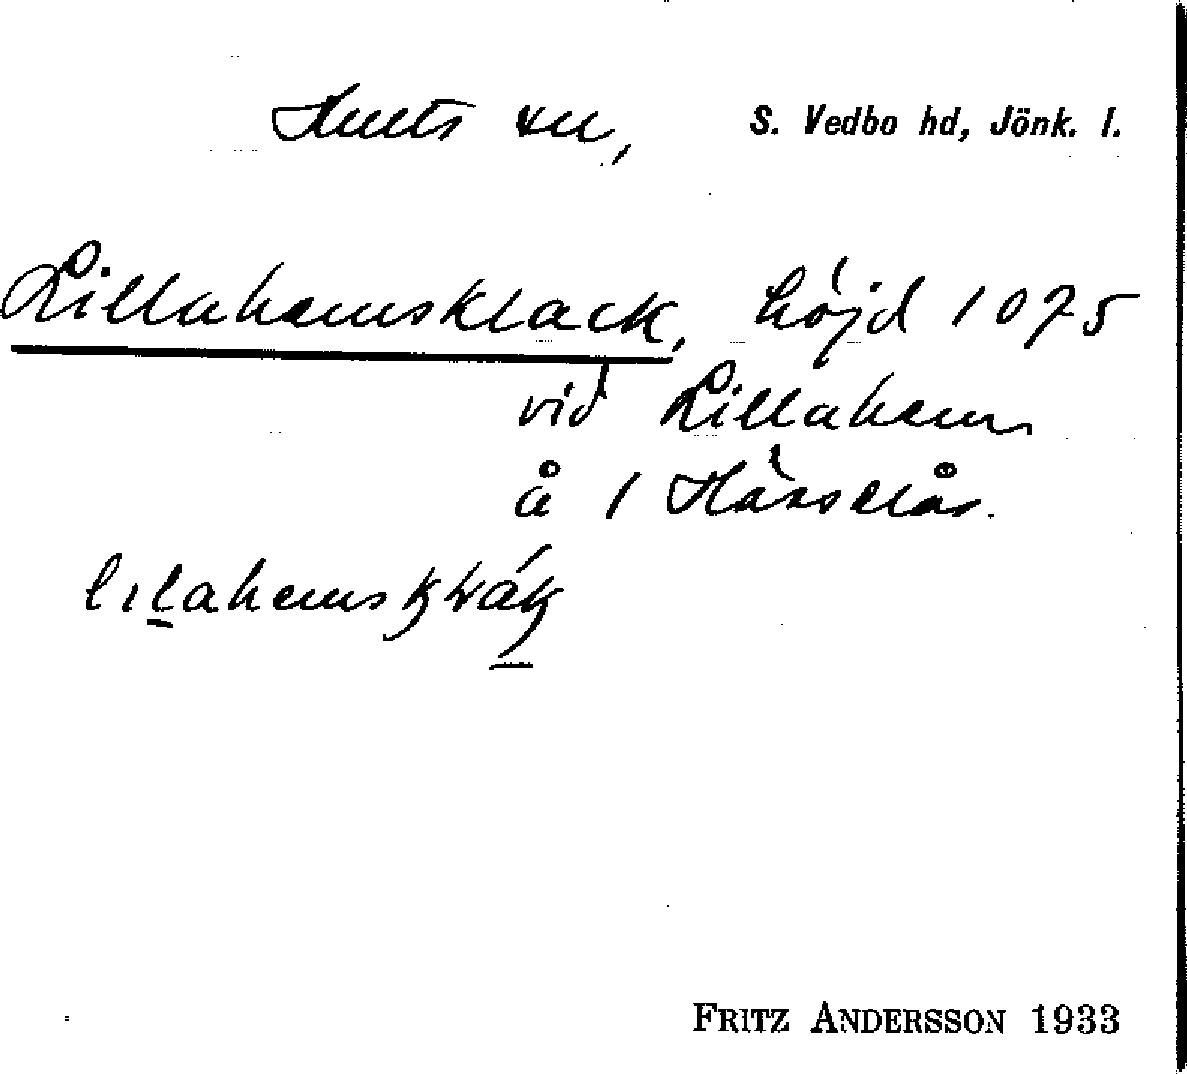 Hults sn, S. Vedbo hd, Jönk. l.
Lillahemsklack, höjd 1075
vid Lillahem
å 1 Hässelås.
FRITZ ANDERSSON 1933